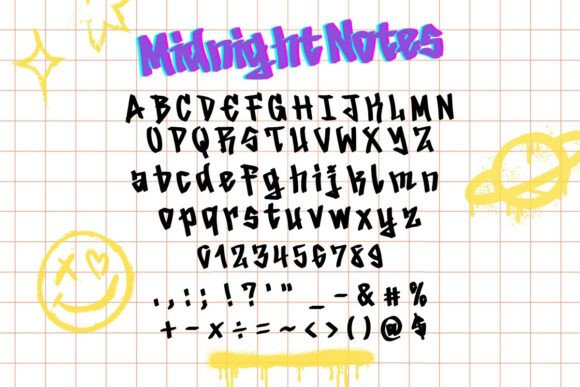 Midnight Notes
A B C D E F G H I J K L M N
O P Q R S T U V W X Y Z
a b c d e f g h i j k l m n
o p q r s t u v w x y z
0 1 2 3 4 5 6 7 8 9
. , : ; ! ? ' " _ - & # %
+ - x ÷ = ~ < > ( ) @ $